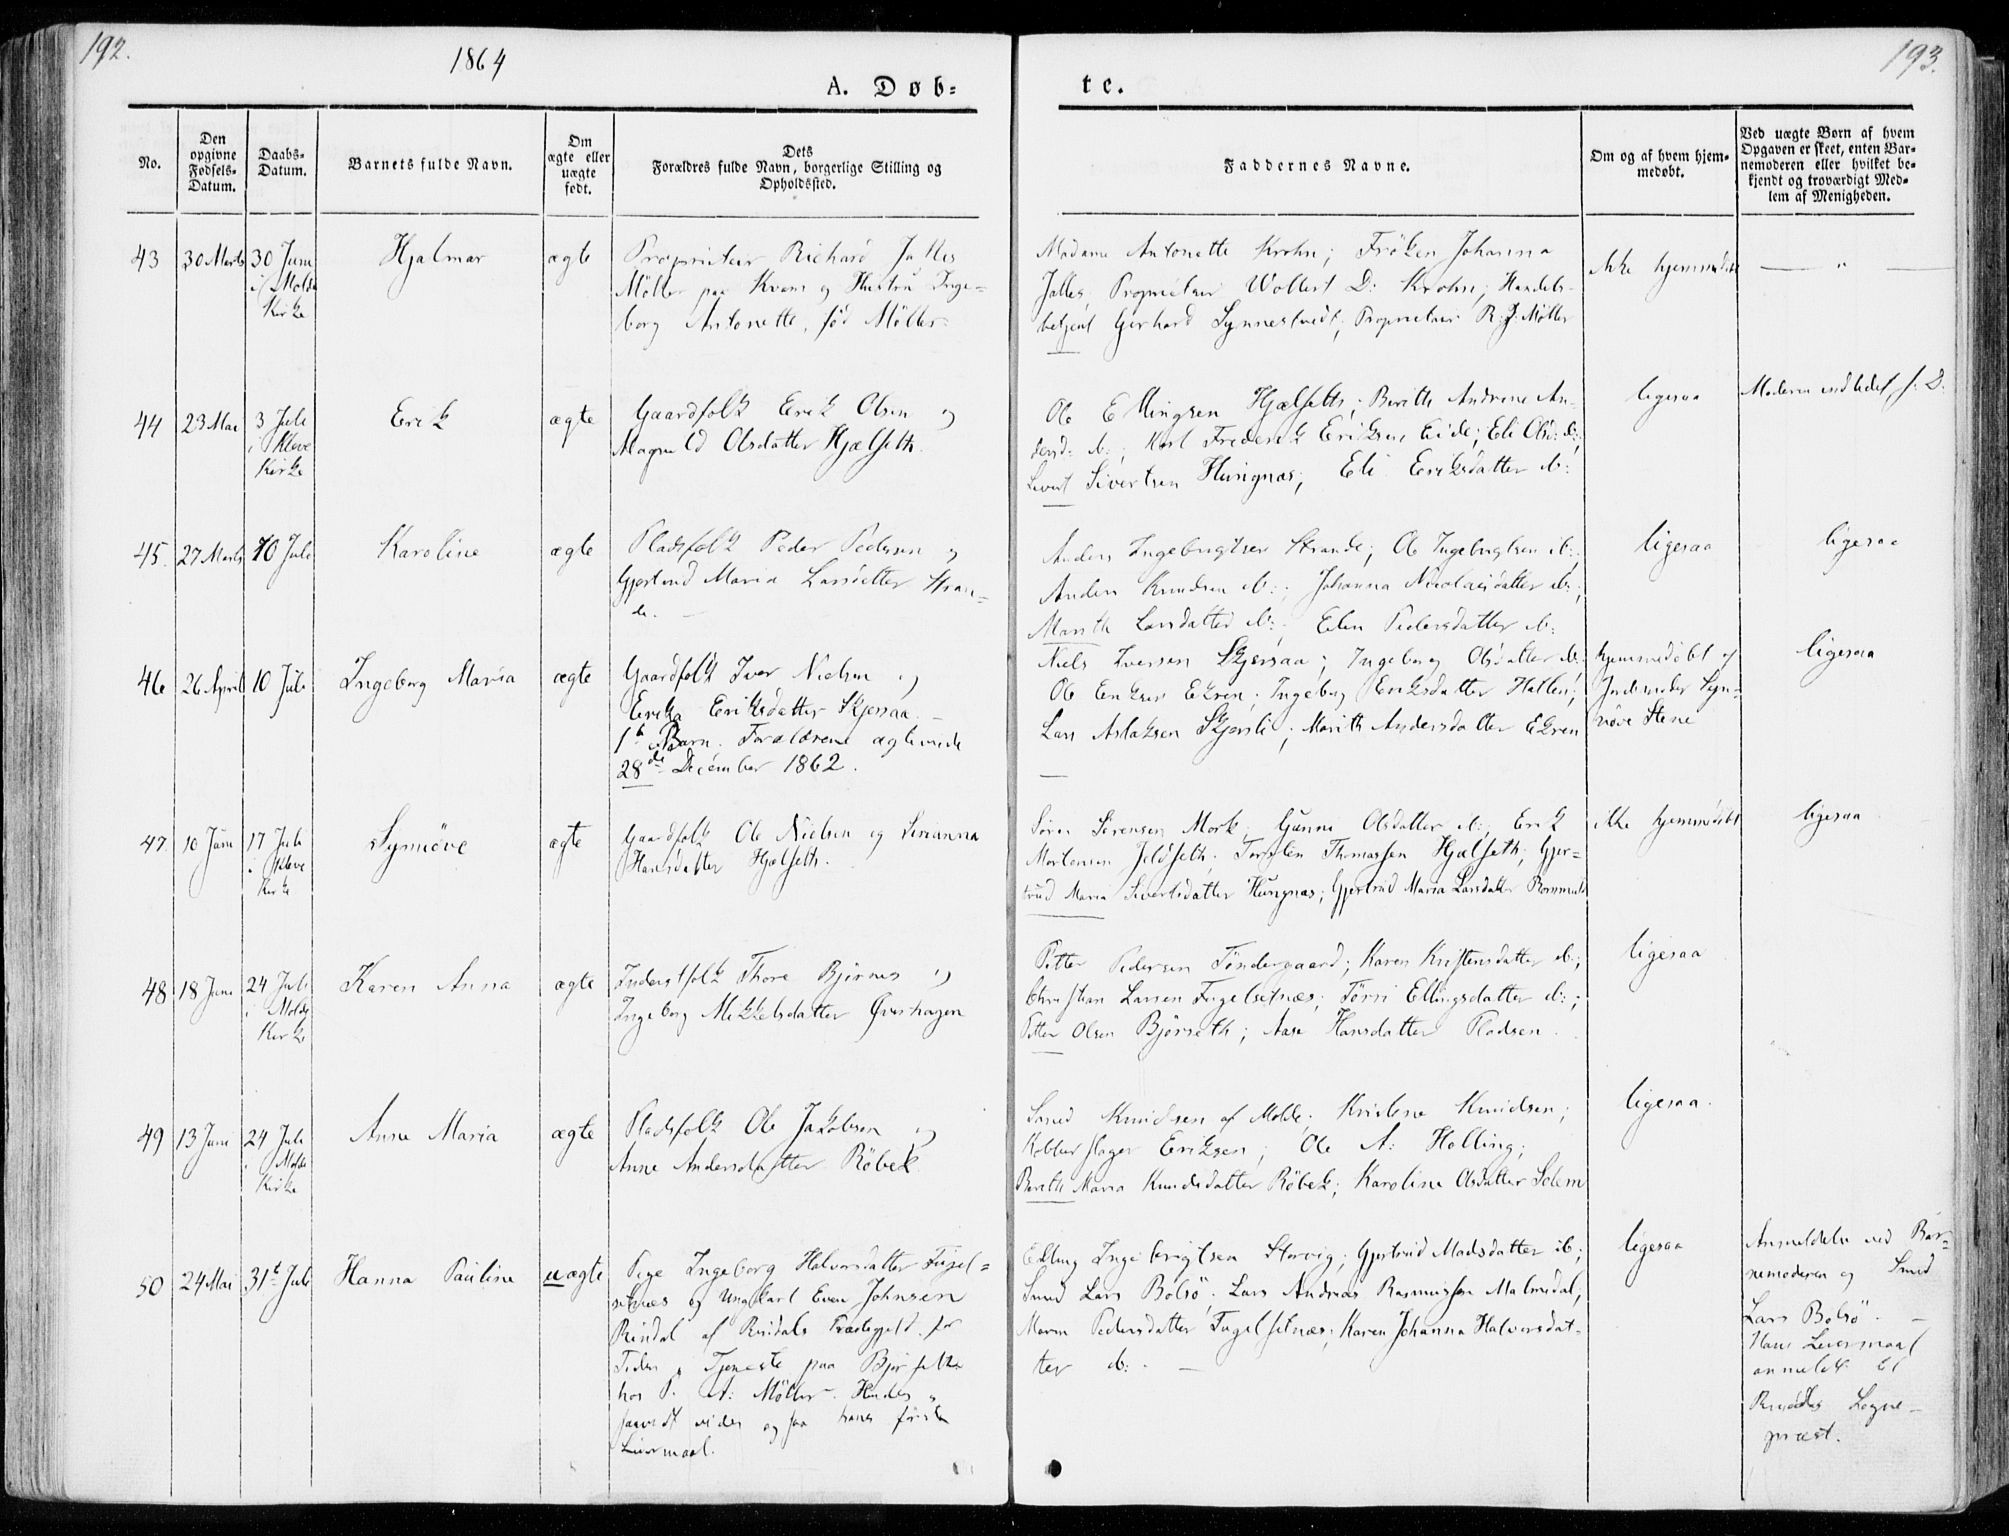 192.
1864
193.
A. Døb=
te.
No.
Den opgivne Fødsels-Datum.
Daabs-Datum.
Barnets fulde Navn.
Om ægte eller uægte født.
Dets
Forældres fulde Navn, borgerlige Stilling og
Opholdssted.
Faddernes Navne.
Om og af hvem hjem-
medøbt.
Ved uægte Børn af hvem
Opgaven er skeet, enten Bar-
nemoderen eller hvilket be-
kjendt og troværdigt Med-
lem af Menigheden.
43
30 Marts
30 Juni
i Molde
Kirke
Hjalmar
ægte
Proprietær Richard Jalles
Møller paa Kvam og Hustru Inge=
borg Antonette, fød Møller.
Madame Antonette Krohn; Frøken Johanna
Jalles, Proprietær Wollert D: Krohn; Handels-
betjent Gerhard Synnestvedt; Proprietær R: J: Møller
ikke hjemmedøbt
— " —
44
23 Mai
3 Juli
i Kleve
Kirke
Erik
ægte
Gaardfolk Erik Olsen og
Magnild Olsdatter Hjælseth.
Ole Ellingsen Hjælseth; Berith Andrine An-
dersd: ib:; Karl Frederik Eriksen Eide; Eli Olsd: ib:;
Sivert Sivertsen Hungnæs; Eli Eriksdatter ib:
ligesaa
Moderen indledet s: D.
45.
27 Marts
10 Juli
Karoline
ægte
Pladsfolk Peder Pedersen og
Gjertrud Maria Larsdatter Stran=
de. —
Anders Ingebrigtsen Strande; Ole Ingebrigtsen ib:;
Anders Knudsen ib:; Johanna Nicolaisdatter ib:;
Marith Larsdatter ib:; Elen Pedersdatter ib:
ligesaa
ligesaa
46
26 April
10 Juli
Ingeborg Maria
ægte
Gaardfolk Iver Nielsen og
Erika Eriksdatter Skjersaa. —
1te Barn. Forældrene ægteviede
28de December 1862.
Niels Iversen Skjersaa; Ingeborg Olsdatter ib:
Ole Eriksen Ekren; Ingeborg Eriksdatter Hatlen;
Lars Aslaksen Skjersli; Marith Andersdatter Ekren
hjemmedøbt af
Jordemoder Syn-
nøve Stene
ligesaa
47
10 Juni
17 Juli
i Kleve
Kirke
Synnøve
ægte
Gaardfolk Ole Nielsen og Serianna
Hansdatter Hjælseth.
Søren Sørensen Mork; Gunne Olsdatter ib:; Erik
Mortensen Jeldseth; Torsten Thomassen Hjælseth; Gjer=
trud Maria Sivertsdatter Hungnæs; Gjertrud Maria Larsdatter
ikke hjemmedøbt
ligesaa
48
18 Juni
24 Juli
i Molde
Kirke
Karen Anna
ægte
Inderstfolk Thore Bjørnes og
Ingeborg Mikkelsdatter Øverhagen
Petter Pedersen Tøndergaard; Karen Kristensdatter ib:;
Christian Larsen Fugelsetnæs; Tørri Ellingsdatter ib:;
Petter Olsen Bjørseth; Aase Hansdatter Pladsen.
ligesaa
49
13 Juni
24 Juli
i Molde
Kirke
Anne Maria
ægte
Pladsfolk Ole Jakobsen og
Anne Andersdatter Røbek
Smed Knudsen af Molde; Kristine Knudsen;
Kobberslager Eriksen; Ole A: Holling;
Berith Maria Knudsdatter Røbek; Karoline Olsdatter Solem
ligesaa.
50
24 Mai
31te Juli
Hanna Pauline
uægte
Pige Ingeborg Halvorsdatter Fugel=
setnæs og Ungkarl Even Johnsen
Rindal af Rindals Præstegjeld for
Tiden i Tjeneste paa Bjørseth
hos P. A: Møller. Hendes,
saavidt vides og saa hans første
Leiermaal.
Elling Ingebrigtsen Storvig; Gjertrud Madsdatter ib:;
Smed Lars Bolsø; Lars Andreas Rasmussen Malmedal,
Maren Pedersdatter Fugelsetnæs; Karen Johanna Halvorsdat-
ter ib: —
ligesaa
Anmeldelse ved Bar=
nemoderen og Smed
Lars Bolsø. —
Hans Leiermaal
anmeldt til
Rindals Sogne-
præst.